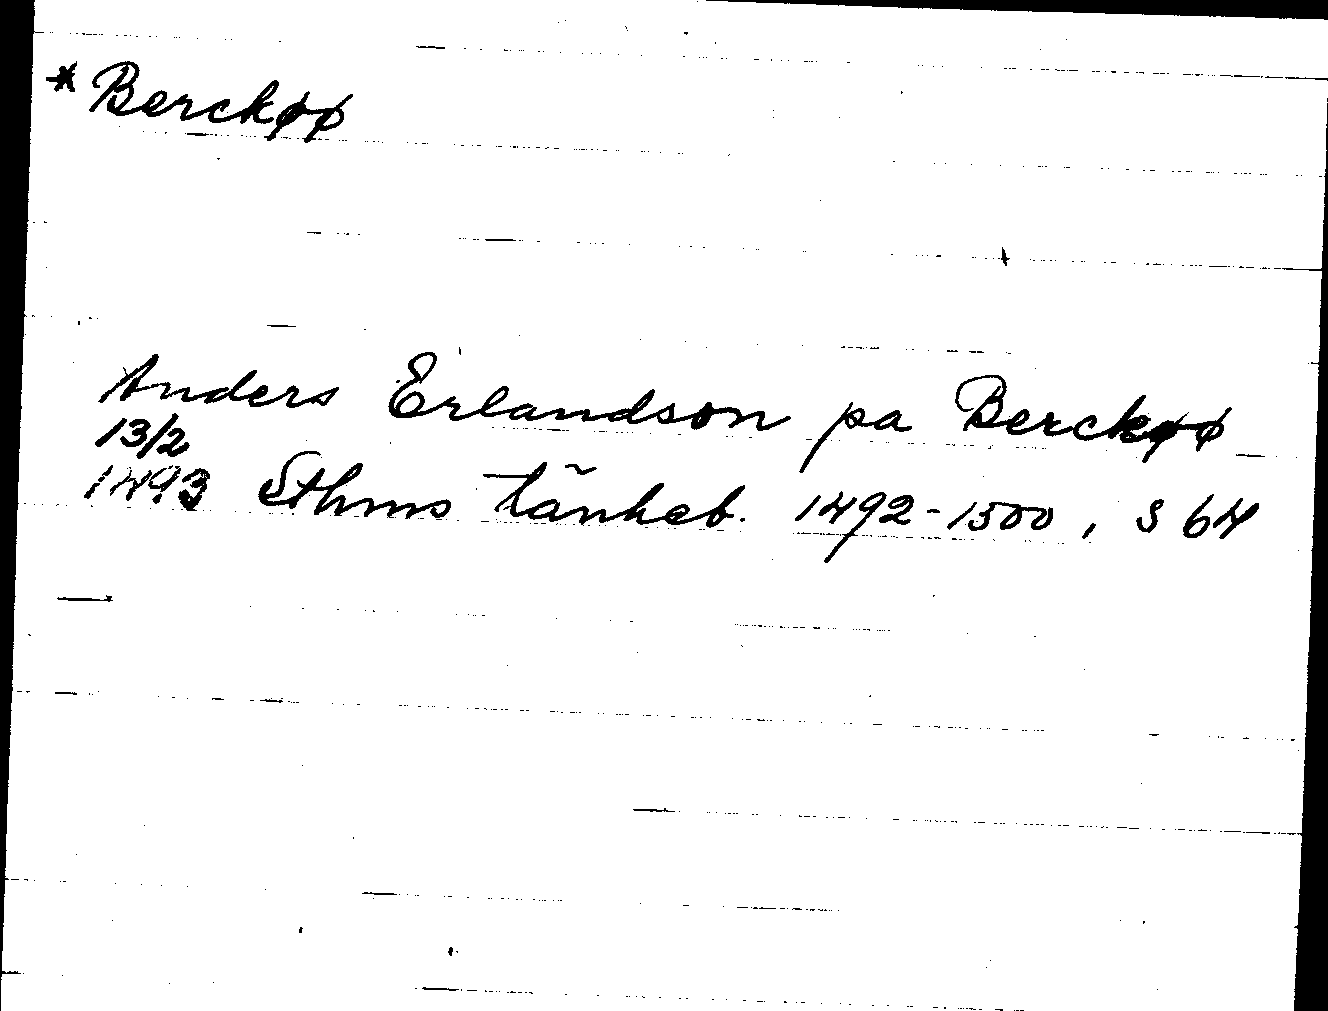 * Berckøø
Anders Erlandson pa Berckøø
13/2
1493 Sthms tänkeb. 1492-1500, s 64